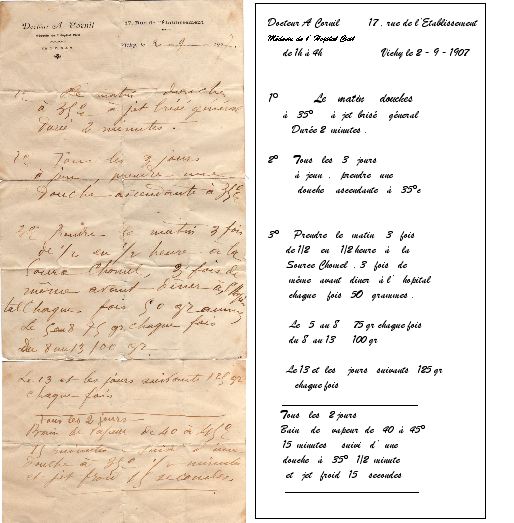 Docteur A. Cornil
17, Rue de l'Etablissement
Médecin de l'Hopital Civil
Vichy, le 2 - 9 - 190
1° Le matin douches
à 35° à jet brisé général
Durée 2 minutes.
2° Tous les 3 jours
à jeun prendre une
Douche ascendante à 35°c
3° Prendre le matin 3 fois
de 1/2 en 1/2 heure à la
Source Chomel, 3 fois de
même avant diner à l'hopi
tal chaque fois 50 gr
Le 5 au 8 75 gr chaque fois
Du 8 au 13 100 gr.
Le 13 et les jours suivants 125 gr
chaque fois
Tous les 2 jours
Bain de vapeur de 40 à 45°
15 minutes suivi d'une
douche à 35° 1/2 minute
et jet froid 15 secondes
Docteur A Cornil 17, rue de l'Etablissement
Médecin de l'Hopital Civil
de 1h à 4h Vichy le 2 - 9 - 1907
1° Le matin douches
à 35° à jet brisé général
Durée 2 minutes .
2° Tous les 3 jours
à jeun , prendre une
douche ascendante à 35°c
3° Prendre le matin 3 fois
de 1/2 en 1/2 heure à la
Source Chomel . 3 fois de
même avant diner à l'hopital
chaque fois 50 grammes .
Le 5 au 8 75 gr chaque fois
du 8 au 13 100 gr
Le 13 et les jours suivants 125 gr
chaque fois
Tous les 2 jours
Bain de vapeur de 40 à 45°
15 minutes suivi d'une
douche à 35° 1/2 minute
et jet froid 15 secondes